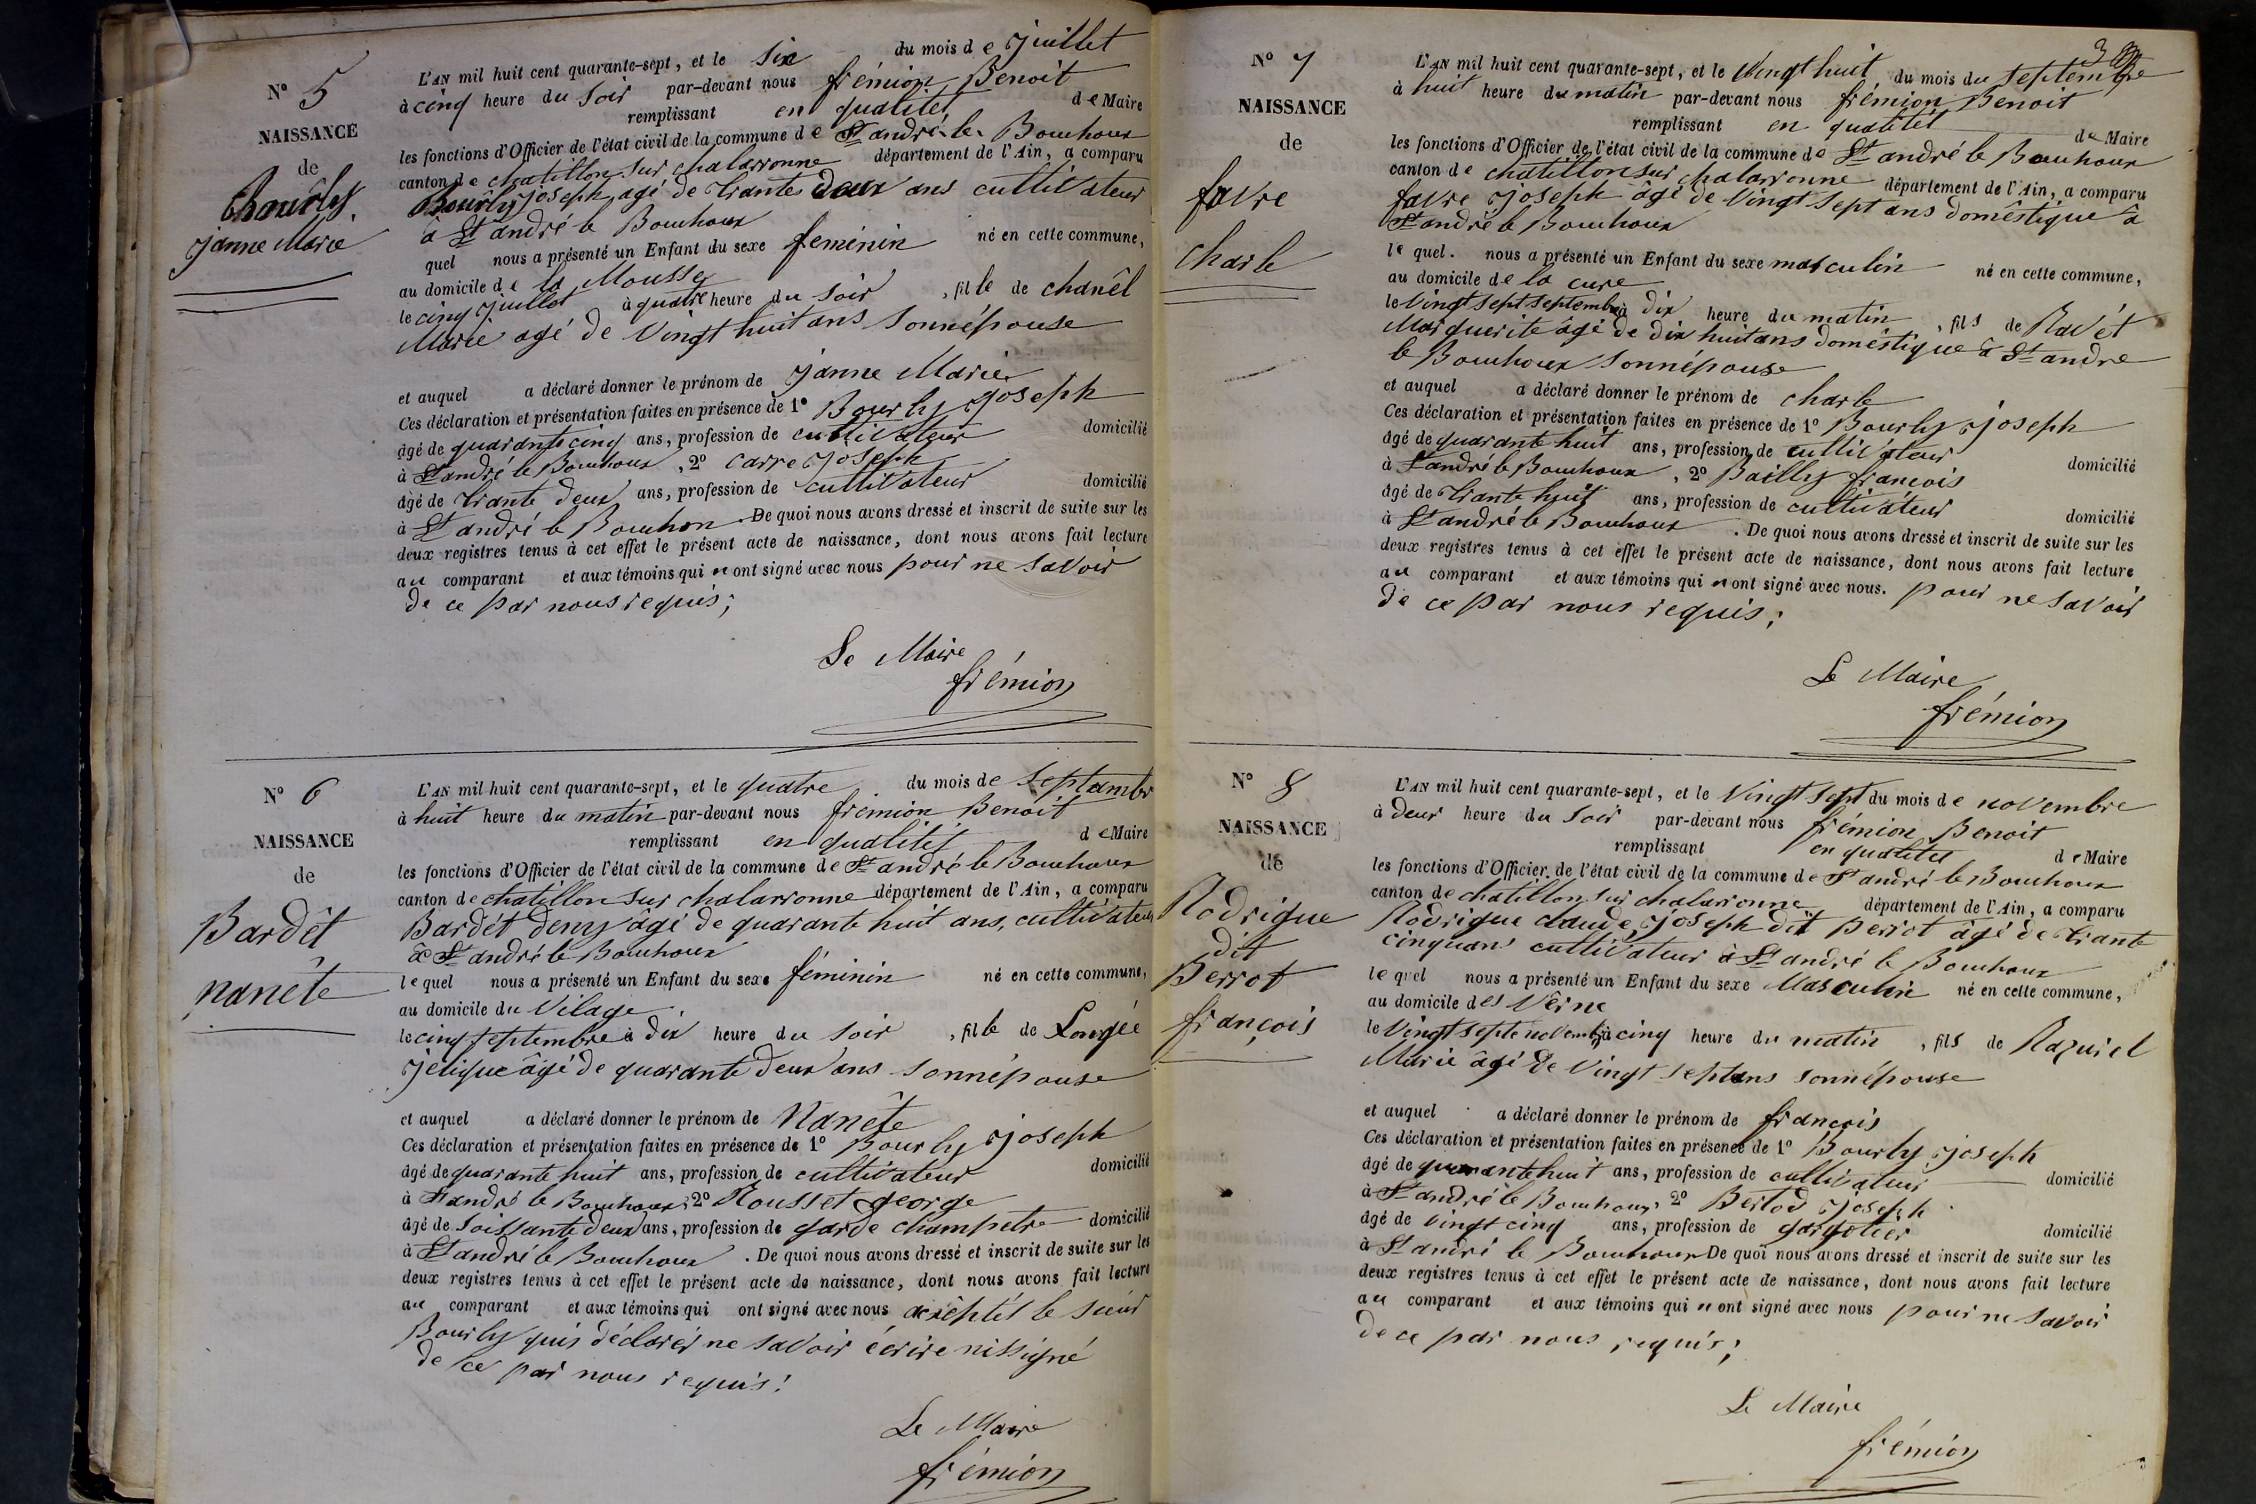 N° 5
NAISSANCE
de
Bourly
janne Marie
L'AN mil huit cent quarante-sept, et le six du mois de juillet
à cinq heure du soir par-devant nous frémion Benoit
remplissant en qualitét de Maire
les fonctions d'Officier de l'état civil de la commune de St andré le Bouchoux
canton de chatillon sur chalarronne département de l'Ain, a comparu
Bourly joseph agé de trante deux ans cultivateur
à St andré le Bouchoux
quel nous a présenté un Enfant du sexe feminin né en cette commune,
au domicile de la Moussy
le cinq juillet à quatre heure du soir , fille de chanêl
Marie agé de vingt huit ans sonnépouse
et auquel a déclaré donner le prénom de janne Marie
Ces déclaration et présentation faites en présence de 1° Bourly joseph
âgé de quarante cinq ans, profession de cultivateur domicilié
à St andré le Bouchoux , 2° Carre joseph
âgé de trante deux ans, profession de cultivateur domicilié
à St andré le Bouchon . De quoi nous avons dressé et inscrit de suite sur les
deux registres tenus à cet effet le présent acte de naissance, dont nous avons fait lecture
au comparant et aux témoins qui n ont signé avec nous pour ne savoir
de ce par nous requis;
Le Maire
frémion
N° 6
NAISSANCE
de
Bardêt
nanête
L'AN mil huit cent quarante-sept, et le quatre du mois de septambr
à huit heure du matin par-devant nous frémion Benoit
remplissant en qualités de Maire
les fonctions d'Officier de l'état civil de la commune de St andré le Bouchoux
canton de chatillon sur chalarronne département de l'Ain, a comparu
Bardét deny âgé de quarante huit ans, cultivateur
à St andré le Bouchoux
le quel nous a présenté un Enfant du sexe féminin né en cette commune,
au domicile du Vilage
le cinq septembre à dix heure du soir , fille de
âgé de quarante deux ans sonnépouse
et auquel a déclaré donner le prénom de Nanête
Ces déclaration et présentation faites en présence de 1° Bourly joseph
âgé de quarante huit ans, profession de cultivateur domicilié
à St andré le Bouchoux 2° Rousset george
âgé de soissante deux ans, profession de garde champetre domicilié
à St andré le Bouchoux . De quoi nous avons dressé et inscrit de suite sur les
deux registres tenus à cet effet le présent acte de naissance, dont nous avons fait lecture
au comparant et aux témoins qui ont signé avec nous le sieur
Bourly quis déclarér ne savoir écrire nissigné
de ce par nous requis!
Le Maire
frémion
3
N° 7
NAISSANCE
de
favre
charle
L'AN mil huit cent quarante-sept, et le vingt huit du mois du septembre
à huit heure du matin par-devant nous frémion Benoit
remplissant en qualitét de Maire
les fonctions d'Officier de l'état civil de la commune de St andré le Bouchoux
canton de chatillon sur chalarronne département de l'Ain, a comparu
favre joseph âgé de vingt sept ans doméstique à
St andré le Bouchoux
le quel. nous a présenté un Enfant du sexe masculin né en cette commune,
au domicile de la cure
le vingt sept septembre à dix heure du matin , fils de Ravét
Marguerite âgé de dix huit ans doméstique à St andre
le Bouchoux sonnépouse
et auquel a déclaré donner le prénom de charle
Ces déclaration et présentation faites en présence de 1° Bourly joseph
âgé de quarante huit ans, profession de cultivateur domicilié
à St andré le Bouchoux , 2° Bailly francois
âgé de trante huit ans, profession de cultivateur domicilié
à St andré le Bouchoux . De quoi nous avons dressé et inscrit de suite sur les
deux registres tenus à cet effet le présent acte de naissance, dont nous avons fait lecture
au comparant et aux témoins qui n ont signé avec nous. pour ne savoir
de ce par nous requis;
Le Maire
frémion
N° 8
NAISSANCE
de
Rodrigue
dit
Perrot
françois
L'AN mil huit cent quarante-sept, et le vingt sept du mois de novembre
à deux heure du soir par-devant nous frémion Benoit
remplissant en qualités de Maire
les fonctions d'Officier de l'état civil de la commune de St andré le Bouchoux
canton de chatillon sur chalarronne département de l'Ain, a comparu
Rodrigue claude joseph dit perrot âgé de trante
cinquans cultivateur à St andré le Bouchoux
le quel nous a présenté un Enfant du sexe Masculin né en cette commune,
au domicile des Vêrne
le vingt septe novembre à cinq heure du matin , fils de Razuret
Marie âgé de vingt septans sonnépouse
et auquel a déclaré donner le prénom de francois
Ces déclaration et présentation faites en présence de 1° Bourly joseph
âgé de quarante huit ans, profession de cultivateur domicilié
à St andré le Bouchoux, 2° Bertod joseph
âgé de vingt cinq ans, profession de gargotier domicilié
à St andré le Bouchoux De quoi nous avons dressé et inscrit de suite sur les
deux registres tenus à cet effet le présent acte de naissance, dont nous avons fait lecture
au comparant et aux témoins qui n ont signé avec nous pour ne savoir
de ce par nous requis;
Le Maire
frémion